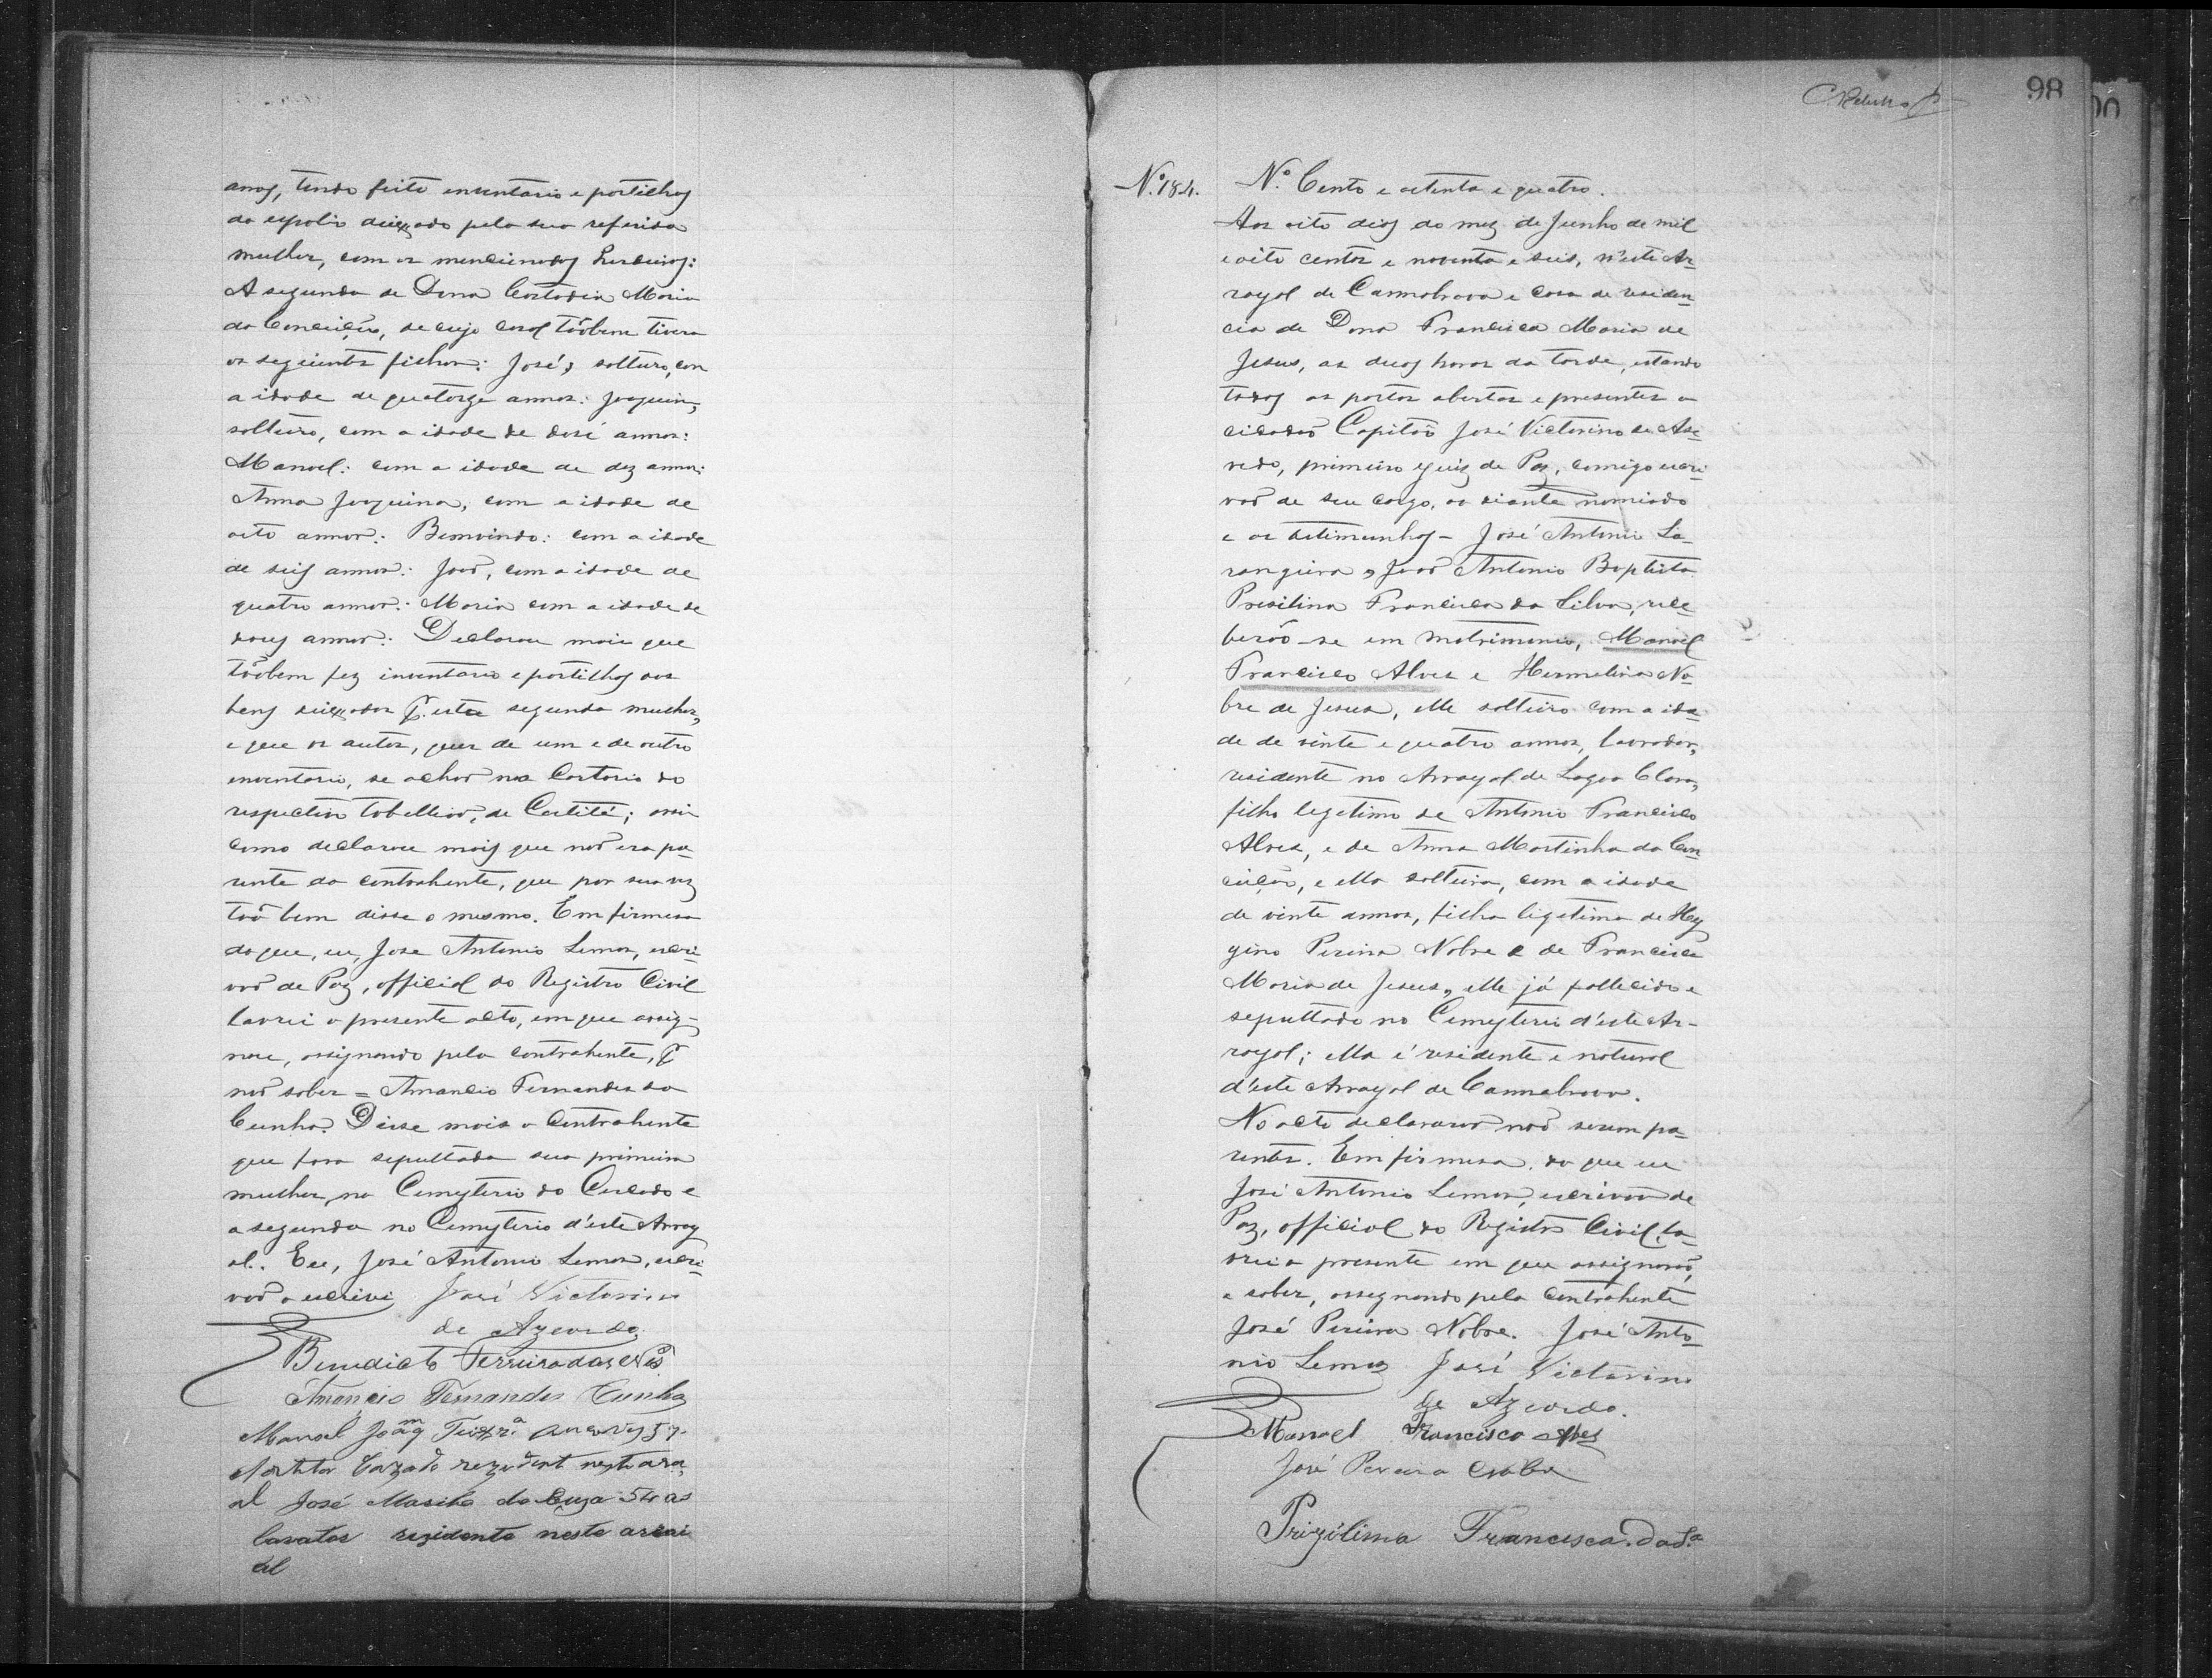 annos, tendo feito inventario e partilhas
do espolio deixado pela sua referida
mulher, com os mencionados herdeiros:
A segunda de Dona Custodia Maria
da Conceição, de cujo casal tãobem tivera
os seguintes filhos: José, solteiro, com
a idade de quatorze annos: Joaquim,
solteiro, com a idade de dose annos:
Manoel: com a idade de dez annos:
Anna Joaquina, com a idade de
oito annos: Bemvindo: com a idade
de seis annos: João, com a idade de
quatro annos: Maria com a idade de
dous annos: Declarou mais que
tãobem fez inventario e partilhas dos
bens deixados p. esta segunda mulher,
e que os autos, quer de um e de outro
inventario, se achão no Cartorio do
respectivo Tabellião, de Caetité; assim
como declarou mais que não era pa-
rente da contrahente, que por sua vez
tão bem disse o mesmo. Em firmesa
do que, eu, José Antonio Lemos, escri-
vão de Paz, official do Registro Civil
lavrei o presente acto, em que assig-
nou, assignando pela contrahente, p.
não saber = Amancio Fernandes da
Cunha. Disse mais o Contrahente
que fora sepultada sua primeira
mulher, no Cemyterio do Cercado e
a segunda no Cemyterio d'este Array
al. Eu, José Antonio Lemos, escri-
vão o escrivi José Victorino
de Azevedo.
Benedicto Ferreira das Neves
Amancio Fernandes Cunha
Manoel Joaqm Teixra.
Cazado rezident nesta ara
al José Maria da 54 as
Casatos rezidente neste arrai
al
98
N.º 184.
N.º Cento e oitenta e quatro.
Aos oito dias do mez de Junho de mil
e oito centos e noventa e seis, n'este Ar-
rayal de Cannabrava e casa de residen-
cia de Dona Francisca Maria de
Jesus, as duas horas da tarde, estando
todas as portas abertas e presentes o
cidadão Capitão José Victorino de Ase-
vedo, primeiro Juiz de Paz, comigo escri-
vão de seu cargo, ao diante nomiado
e as testimunhas - José Antonio La-
rangeira, João Antonio Baptista
Presilina Francisca da Silva, rece-
berão-se em matrimonio, Manoel
Francisco Alves e Hermelina No-
bre de Jesus, elle solteiro com a ida-
de de vinte e quatro annos, lavrador,
residente no Arrayal de Lagoa Clara,
filho legitimo de Antonio Francisco
Alves, e de Anna Martinha da Con-
ceição, e ella solteira, com a idade
de vinte annos, filha ligitima de Hey
gino Pereira Nobre e de Francisca
Maria de Jesus, elle já fallecido e
sepultado no Cemyterio d'este Ar-
rayal; ella é residente e natural
d'este Arrayal de Cannabrava.
No acto declararão não serem pa-
rentes. Em firmesa do que eu
José Antonio Lemos, escrivão de
Paz, official do Registro Civil, la-
vrei o presente em que assignarão,
a saber, assignando pela Contrahente
José Pereira Nobre. José Anto-
nio Lemos José Victorino
de Azevedo.
Manoel Francisco Alves
José Pereira Nobre
Prizilima Francisca da Sa